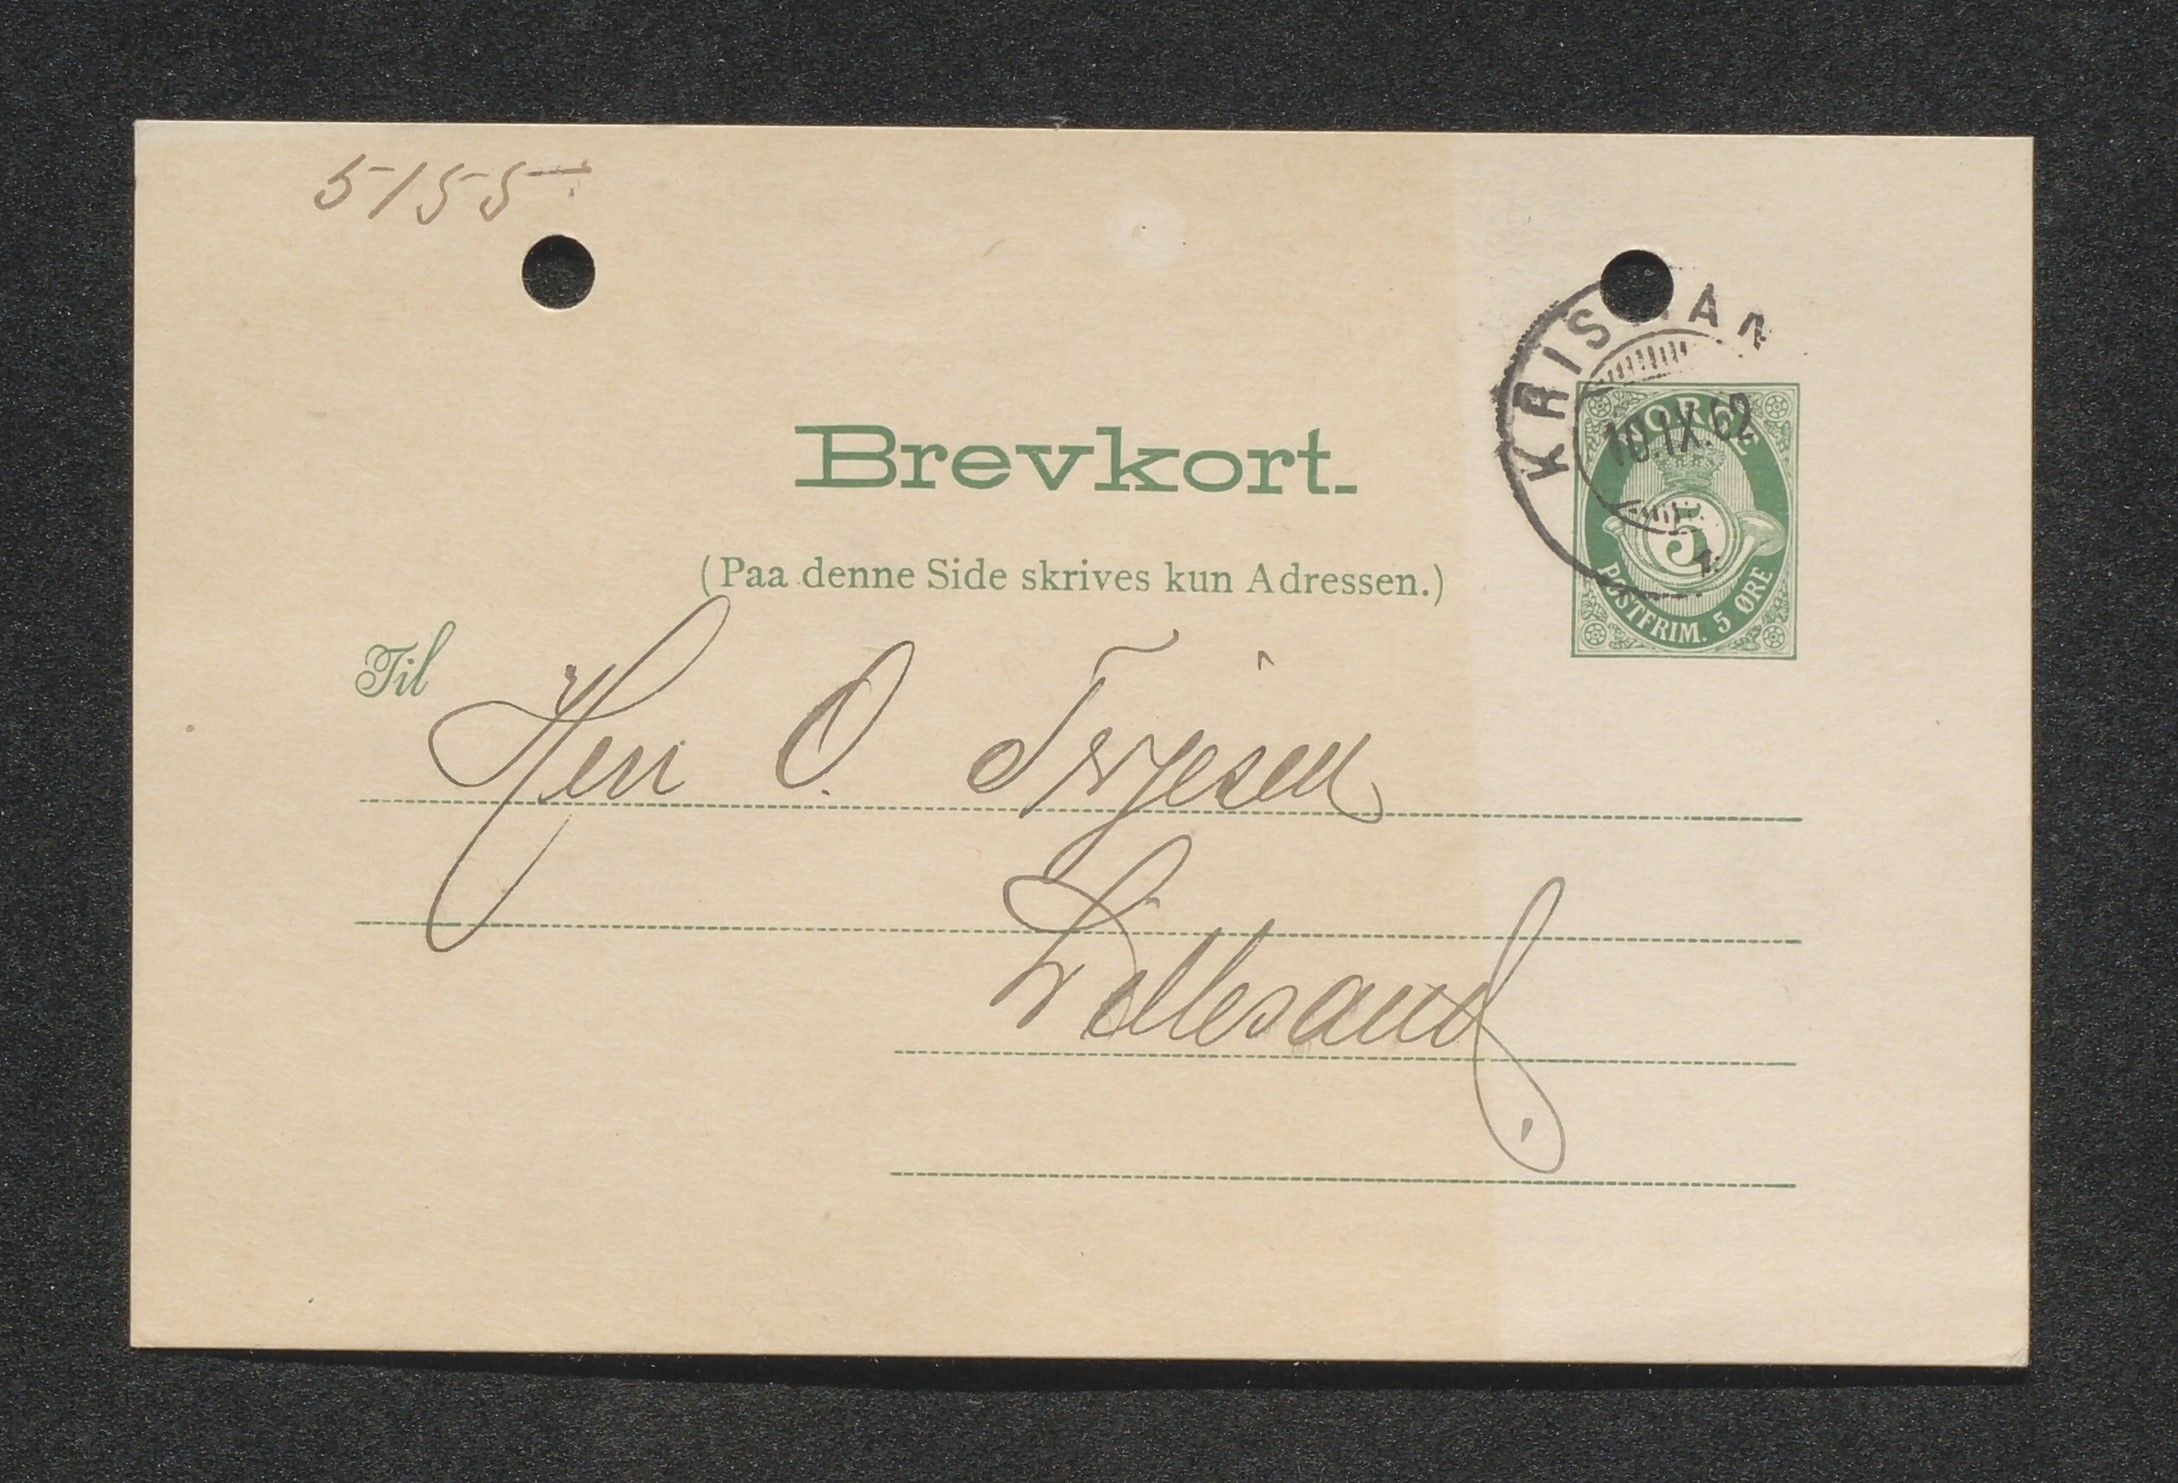 5155
KRISTIAN
10.IX.62
NORGE
5
POSTFRIM. 5 ØRE
Brevkort.
(Paa denne Side skrives kun Adressen.)
Til
Herr O. Terjesen
Lillesand.